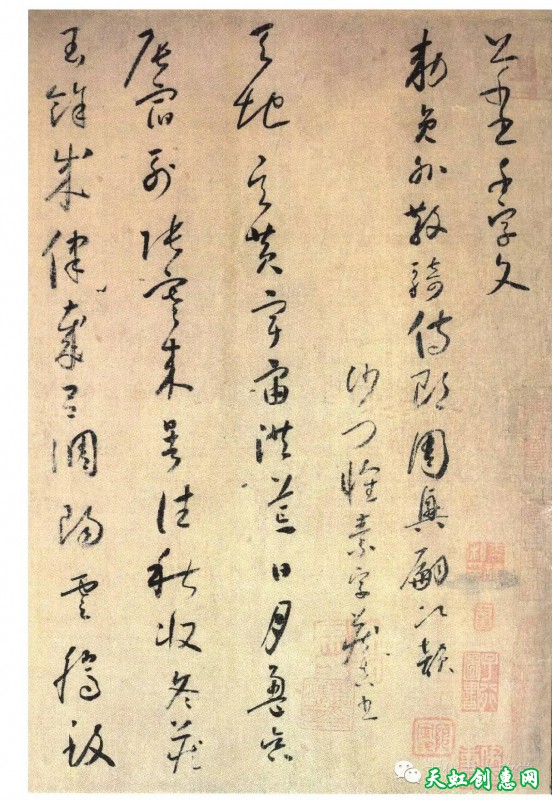 千字文
敕員外散騎侍郎周興嗣次韻
沙門懷素字藏真書
天地玄黃宇宙洪荒日月盈昃
辰宿列張寒來暑往秋收冬藏
閏餘成律歲呂調陽雲騰致
天虹创惠网